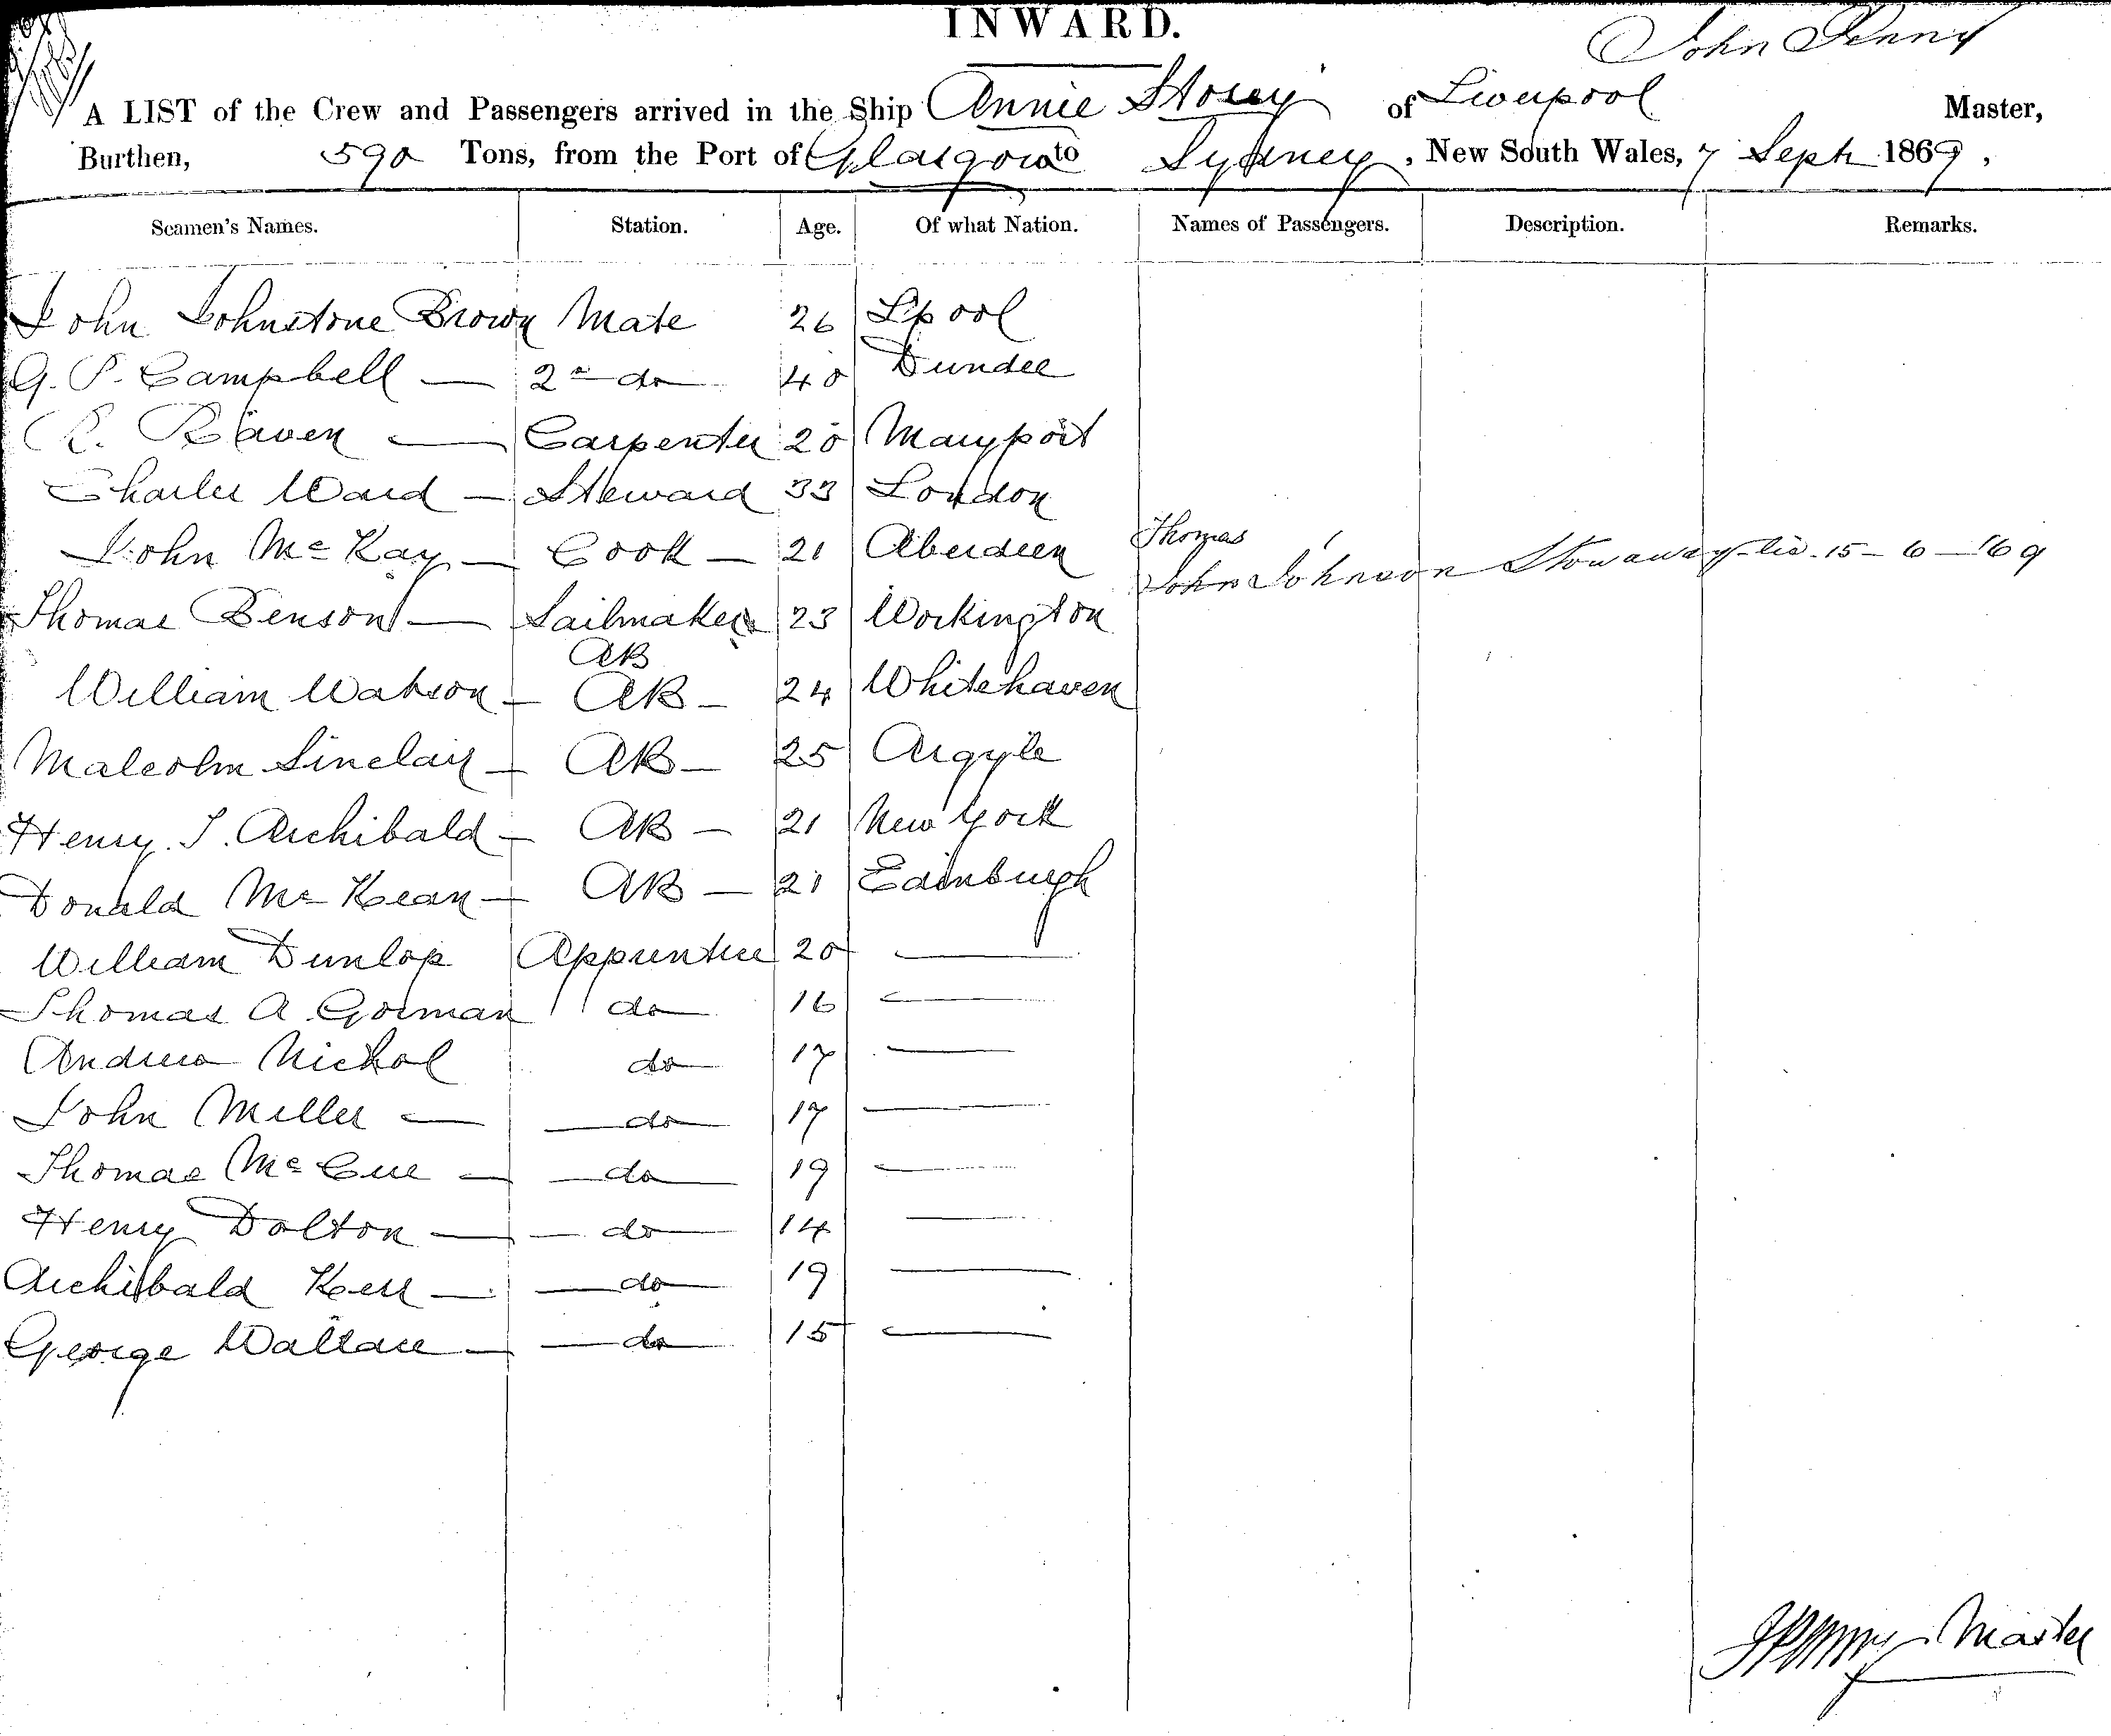 INWARD.
John Penny
A LIST of the Crew and Passengers arrived in the Ship Annie Storey of Liverpool Master,
Burthen, 590 Tons, from the Port of Glasgow to Sydney, New South Wales, 7 Sept 1869.
Seamen's Names. Station. Age. Of what Nation. Names of Passengers. Description. Remarks.
John Johnstone Brown Mate 26 Lpool
G. P. Campbell — 2nd do 40 Dundee
R. Raven — Carpenter 20 Maryport
Charles Ward — Steward 33 London
John McKay — Cook — 21 Aberdeen
Thomas
John Johnson Stowaway 15-6-69
Thomas Benson — Sailmaker 23 Workington
AB
William Watson — AB — 24 Whitehaven
Malcolm Sinclair — AB — 25 Argyle
Henry. J. Archibald — AB — 21 New York
Donald McKean — AB — 21 Edinburgh
William Dunlop Apprentice 20 —
Thomas A Gorman do 16 —
Andrew Nichol do 17 —
John Miller — do 17 —
Thomas McCue — do 19 —
Henry Dalton — do 14 —
Archibald Kerr — do 19 —
George Wallace — do 15 —
JPenny Master